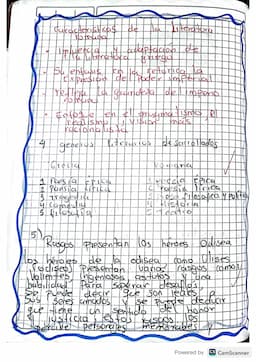 Características de la literatura
romana
• Influencia y adaptación de
la literatura griega
• Su enfoque en la retórica, la
expresión del Poder imperial
• Refleja la grandeza del imperio
romano
• Enfoque en el pragmatismo, el
realismo y visión más
racionalista
4 generos literarios desarrollados
Grecia
Romana
1 Poesía Épica
1 Poesía Épica
2 Poesía lírica
2 Poesía lírica
3 Tragedia
3 filosofica y politica
4 comedia
4 Historia
5 filosofía
5 teatro
5)
Rasgos Presentan los héroes Odisea
los héroes de la odisea como Ulises
(odiseo) Presentan varios rasgos como:
Valientes ingeniosos astutos y una
habilidad Para superar desafíos
se puede decir que son leales a
sus seres amados y se puede deducir
que tiene un sentido de honor
y justicia estos los
personales
Powered by CamScanner